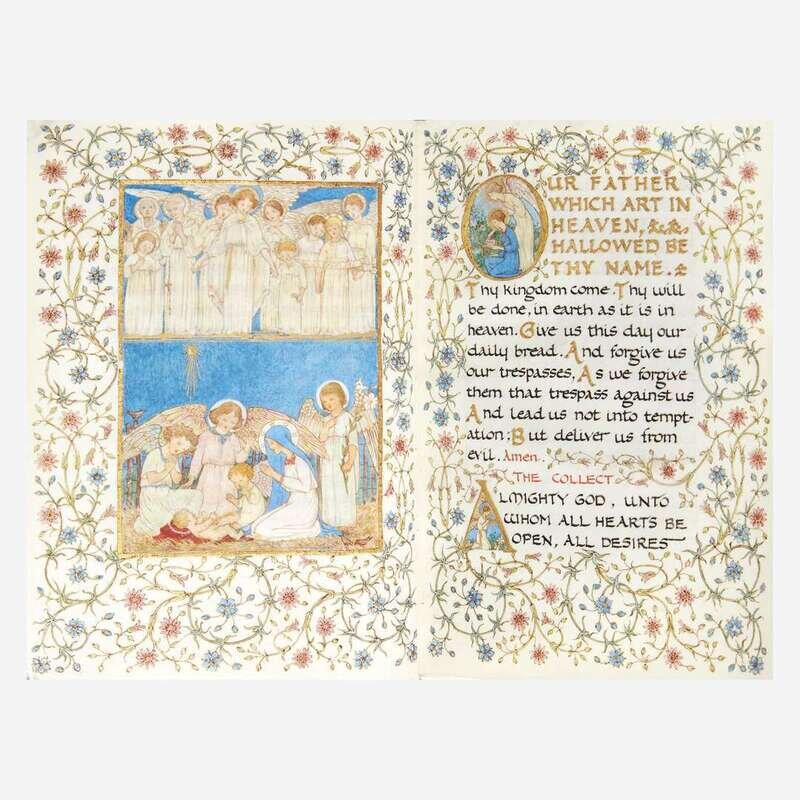 OUR FATHER
WHICH ART IN
HEAVEN, & &
HALLOWED BE
THY NAME.
Thy kingdom come. Thy will
be done, in earth as it is in
heaven. Give us this day our
daily bread. And forgive us
our trespasses, As we forgive
them that trespass against us
And lead us not into tempt-
ation; But deliver us from
evil. Amen.
THE COLLECT
ALMIGHTY GOD, UNTO
WHOM ALL HEARTS BE
OPEN, ALL DESIRES